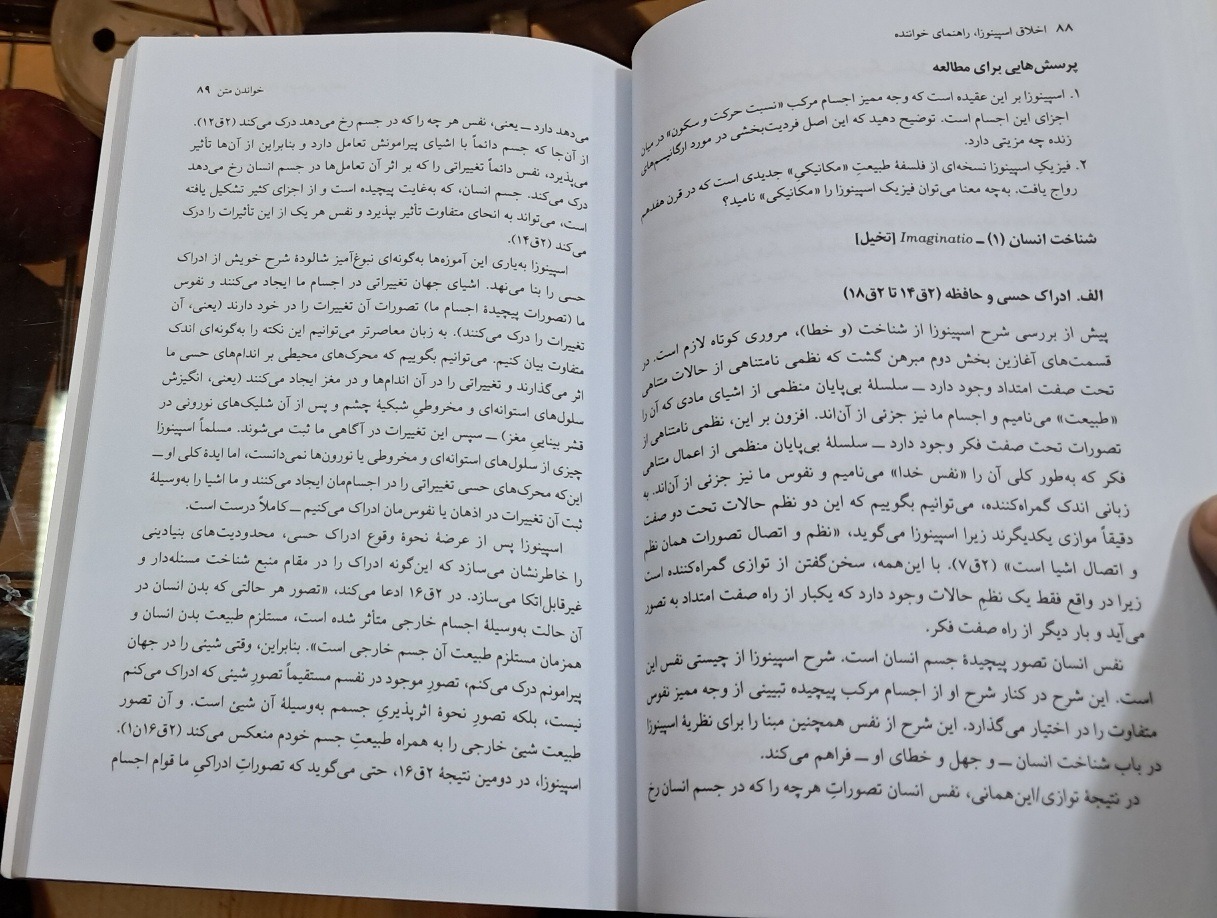 ۸۸ اخلاق اسپینوزا، راهنمای خواننده
پرسش‌هایی برای مطالعه
۱. اسپینوزا بر این عقیده است که وجه ممیز اجسام مرکب «نسبت حرکت و سکون» در میان
اجزای این اجسام است. توضیح دهید که این اصل فردیت‌بخشی در مورد ارگانیسم‌های
زنده چه مزیتی دارد.
۲. فیزیکِ اسپینوزا نسخه‌ای از فلسفهٔ طبیعتِ «مکانیکیِ» جدیدی است که در قرن هفدهم
رواج یافت. به‌چه معنا می‌توان فیزیک اسپینوزا را «مکانیکی» نامید؟
شناخت انسان (۱) ــ Imaginatio [تخیل]
الف. ادراک حسی و حافظه (۲ق۱۴ تا ۲ق۱۸)
پیش از بررسی شرح اسپینوزا از شناخت (و خطا)، مروری کوتاه لازم است. در
قسمت‌های آغازین بخش دوم مبرهن گشت که نظمی نامتناهی از حالات متناهی
تحت صفت امتداد وجود دارد ــ سلسلهٔ بی‌پایان منظمی از اشیای مادی که آن را
«طبیعت» می‌نامیم و اجسام ما نیز جزئی از آن‌اند. افزون بر این، نظمی نامتناهی از
تصورات تحت صفت فکر وجود دارد ــ سلسلهٔ بی‌پایان منظمی از اعمال متناهی
فکر که به‌طور کلی آن را «نفس خدا» می‌نامیم و نفوس ما نیز جزئی از آن‌اند. به
زبانی اندک گمراه‌کننده، می‌توانیم بگوییم که این دو نظم حالات تحت دو صفت
دقیقاً موازی یکدیگرند زیرا اسپینوزا می‌گوید، «نظم و اتصال تصورات همان نظم
و اتصال اشیا است» (۲ق۷). با این‌همه، سخن‌گفتن از توازی گمراه‌کننده است
زیرا در واقع فقط یک نظمِ حالات وجود دارد که یکبار از راه صفت امتداد به تصور
می‌آید و بار دیگر از راه صفت فکر.
نفس انسان تصور پیچیدهٔ جسم انسان است. شرح اسپینوزا از چیستی نفس این
است. این شرح در کنار شرح او از اجسام مرکب پیچیده تبیینی از وجه ممیز نفوس
متفاوت را در اختیار می‌گذارد. این شرح از نفس همچنین مبنا را برای نظریهٔ اسپینوزا
در باب شناخت انسان ــ و جهل و خطای او ــ فراهم می‌کند.
در نتیجهٔ توازی/این‌همانی، نفس انسان تصوراتِ هرچه را که در جسم انسان رخ
خواندن متن ۸۹
می‌دهد دارد ــ یعنی، نفس هر چه را که در جسم رخ می‌دهد درک می‌کند (۲ق۱۲).
از آن‌جا که جسم دائماً با اشیای پیرامونش تعامل دارد و بنابراین از آن‌ها تأثیر
می‌پذیرد، نفس دائماً تغییراتی را که بر اثر آن تعامل‌ها در جسم انسان رخ می‌دهد
درک می‌کند. جسم انسان، که به‌غایت پیچیده است و از اجزای کثیر تشکیل یافته
است، می‌تواند به انحای متفاوت تأثیر بپذیرد و نفس هر یک از این تأثیرات را درک
می‌کند (۲ق۱۴).
اسپینوزا به‌یاری این آموزه‌ها به‌گونه‌ای نبوغ‌آمیز شالودهٔ شرح خویش از ادراک
حسی را بنا می‌نهد. اشیای جهان تغییراتی در اجسام ما ایجاد می‌کنند و نفوس
ما (تصورات پیچیدهٔ اجسام ما) تصورات آن تغییرات را در خود دارند (یعنی، آن
تغییرات را درک می‌کنند). به زبان معاصرتر می‌توانیم این نکته را به‌گونه‌ای اندک
متفاوت بیان کنیم. می‌توانیم بگوییم که محرک‌های محیطی بر اندام‌های حسی ما
اثر می‌گذارند و تغییراتی را در آن اندام‌ها و در مغز ایجاد می‌کنند (یعنی، انگیزش
سلول‌های استوانه‌ای و مخروطیِ شبکیهٔ چشم و پس از آن شلیک‌های نورونی در
قشر بیناییِ مغز) ــ سپس این تغییرات در آگاهی ما ثبت می‌شوند. مسلماً اسپینوزا
چیزی از سلول‌های استوانه‌ای و مخروطی یا نورون‌ها نمی‌دانست، اما ایدهٔ کلی او ــ
این‌که محرک‌های حسی تغییراتی را در اجسام‌مان ایجاد می‌کنند و ما اشیا را به‌وسیلهٔ
ثبت آن تغییرات در اذهان یا نفوس‌مان ادراک می‌کنیم ــ کاملاً درست است.
اسپینوزا پس از عرضهٔ نحوهٔ وقوع ادراک حسی، محدودیت‌های بنیادینی
را خاطرنشان می‌سازد که این‌گونه ادراک را در مقام منبع شناخت مسئله‌دار و
غیرقابل‌اتکا می‌سازد. در ۲ق۱۶ ادعا می‌کند، «تصور هر حالتی که بدن انسان در
آن حالت به‌وسیلهٔ اجسام خارجی متأثر شده است، مستلزم طبیعت بدن انسان و
همزمان مستلزم طبیعت آن جسم خارجی است». بنابراین، وقتی شیئی را در جهان
پیرامونم درک می‌کنم، تصورِ موجود در نفسم مستقیماً تصورِ شیئی که ادراک می‌کنم
نیست، بلکه تصورِ نحوهٔ اثرپذیریِ جسمم به‌وسیلهٔ آن شیئ است. و آن تصور
طبیعت شیئ خارجی را به همراه طبیعتِ جسم خودم منعکس می‌کند (۲ق۱۶ن۱).
اسپینوزا، در دومین نتیجهٔ ۲ق۱۶، حتی می‌گوید که تصوراتِ ادراکیِ ما قوام اجسام